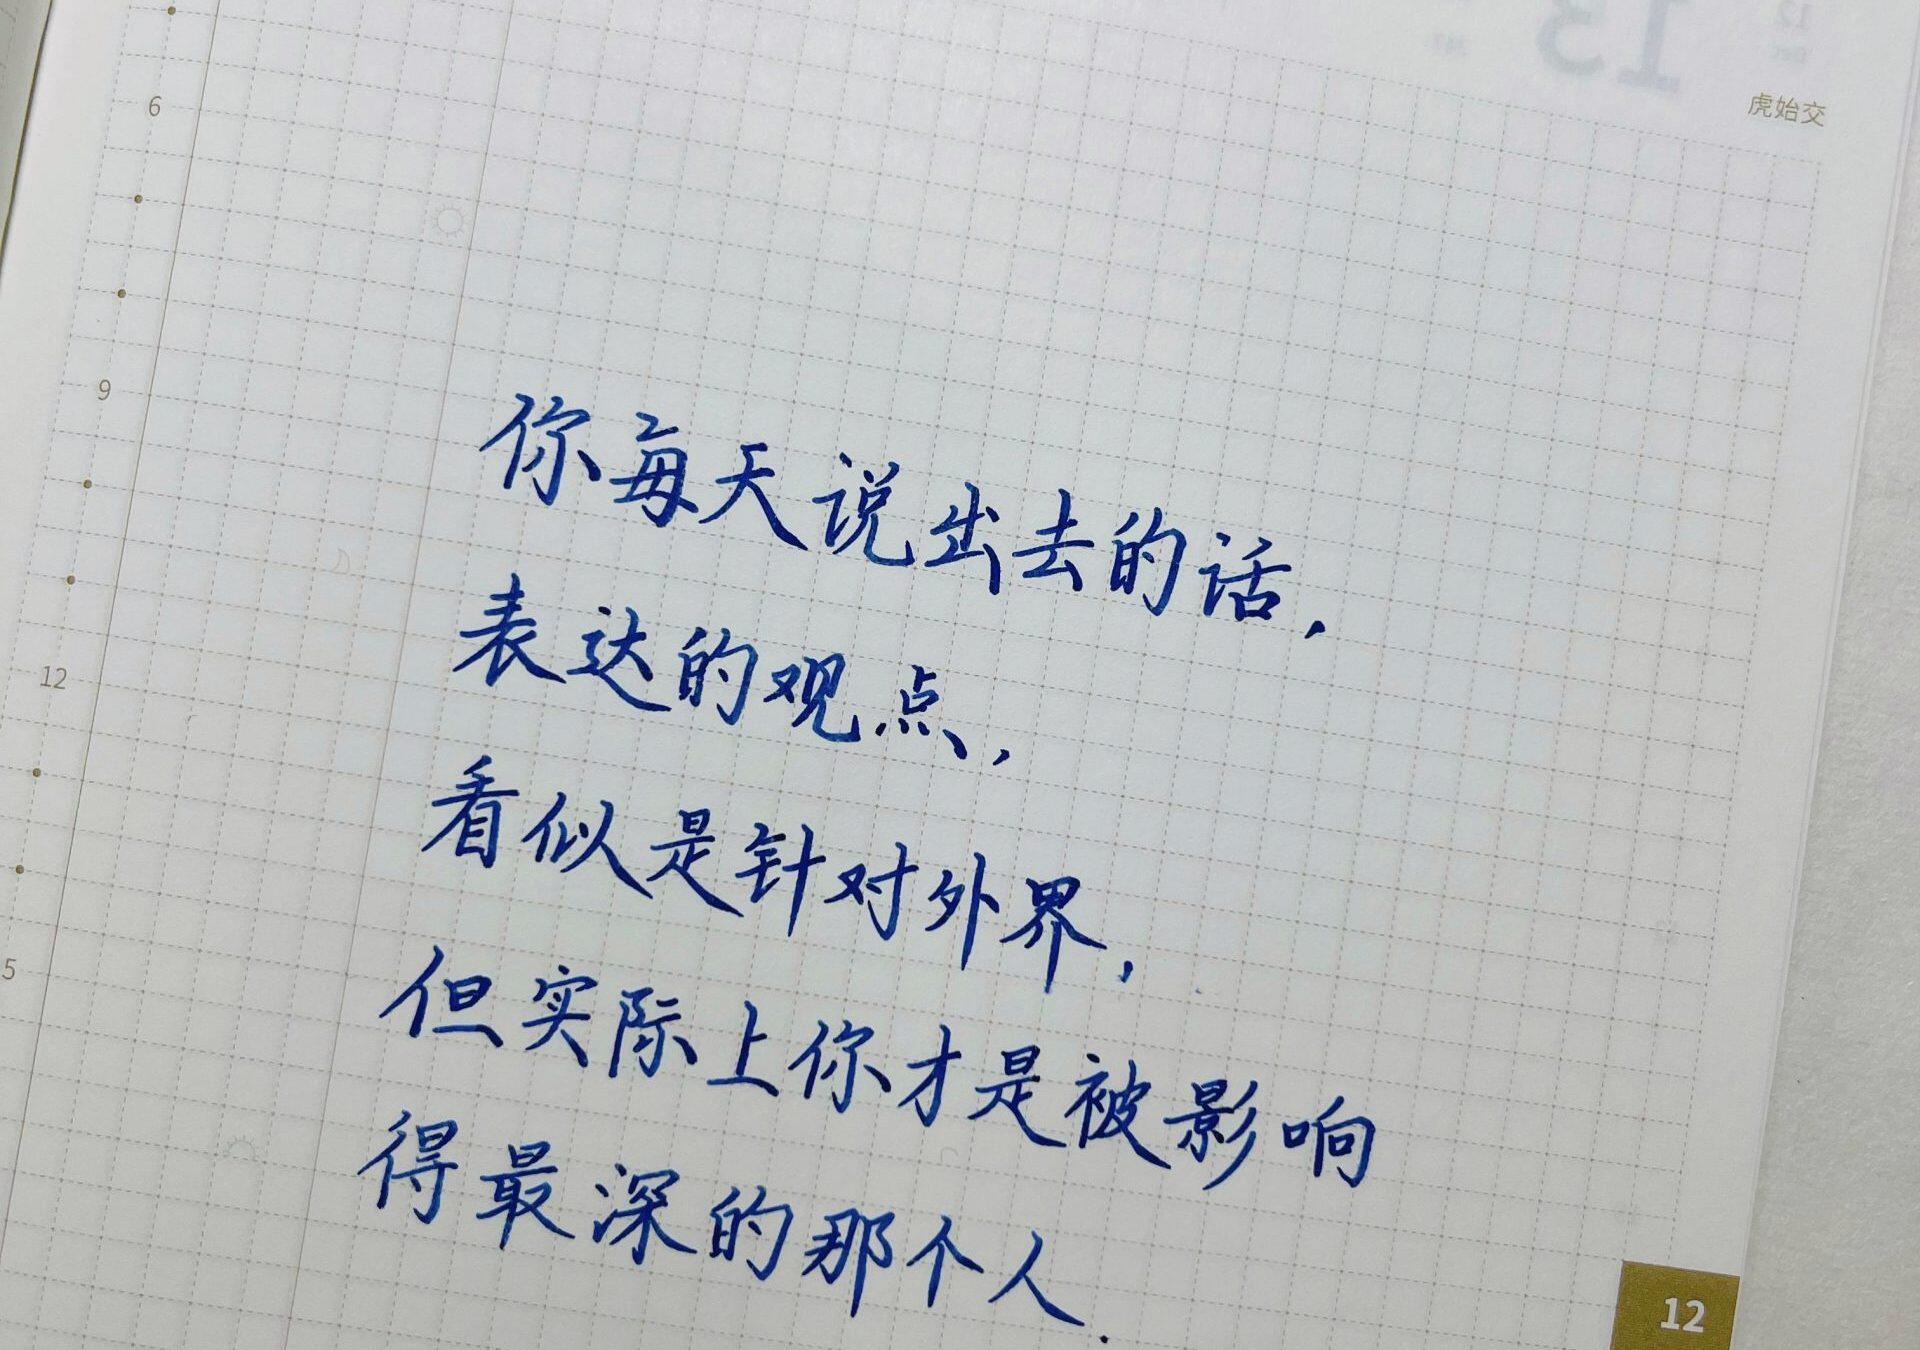 虎始交
6
9
12
5
你每天说出去的话，
表达的观点，
看似是针对外界，
但实际上你才是被影响
得最深的那个人.
12